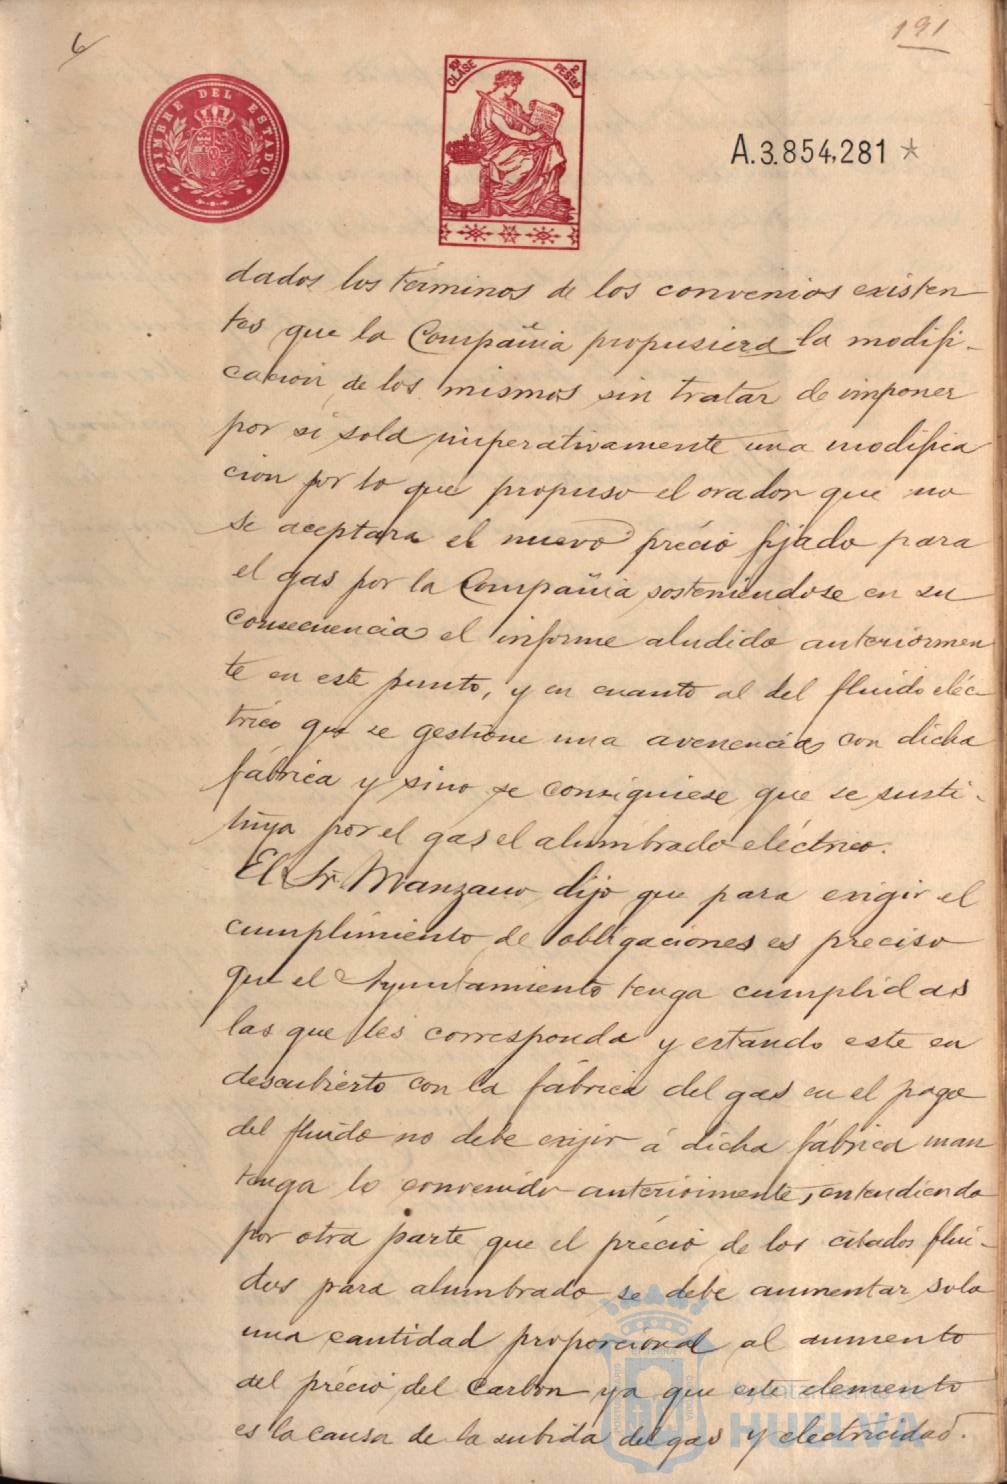 6
191
TIMBRE DEL ESTADO
10ª CLASE
2 PESTAS
A.3.854,281 *
dados los términos de los convenios existen
tes que la Compañia propusiera la modifi-
cacion de los mismos sin tratar de imponer
por si sola imperativamente una modifica
cion por lo que propuso el orador que no
se aceptara el nuevo précio fijado para
el gas por la Compañia sosteniendose en su
consecuencia el informe aludido anteriormen
te en este punto, y en cuanto al del fluido eléc-
trico que se gestione una avenencia con dicha
fábrica y sino se consiguiese que se susti-
tuya por el gas el alumbrado eléctrico.
El Sr. Manzano dijo que para exigir el
cumplimiento de obligaciones es preciso
que el Ayuntamiento tenga cumplidas
las que les corresponda y estando este en
descubierto con la fábrica del gas en el pago
del fluido no debe exijir á dicha fábrica man
tenga lo convenido anteriormente, entendiendo
por otra parte que el précio de los citados flui-
dos para alumbrado se debe aumentar sola
una cantidad proporcional al aumento
del précio del carbon ya que este elemento
es la causa de la subida del gas y electricidad.
Ayuntamiento de
HUELVA